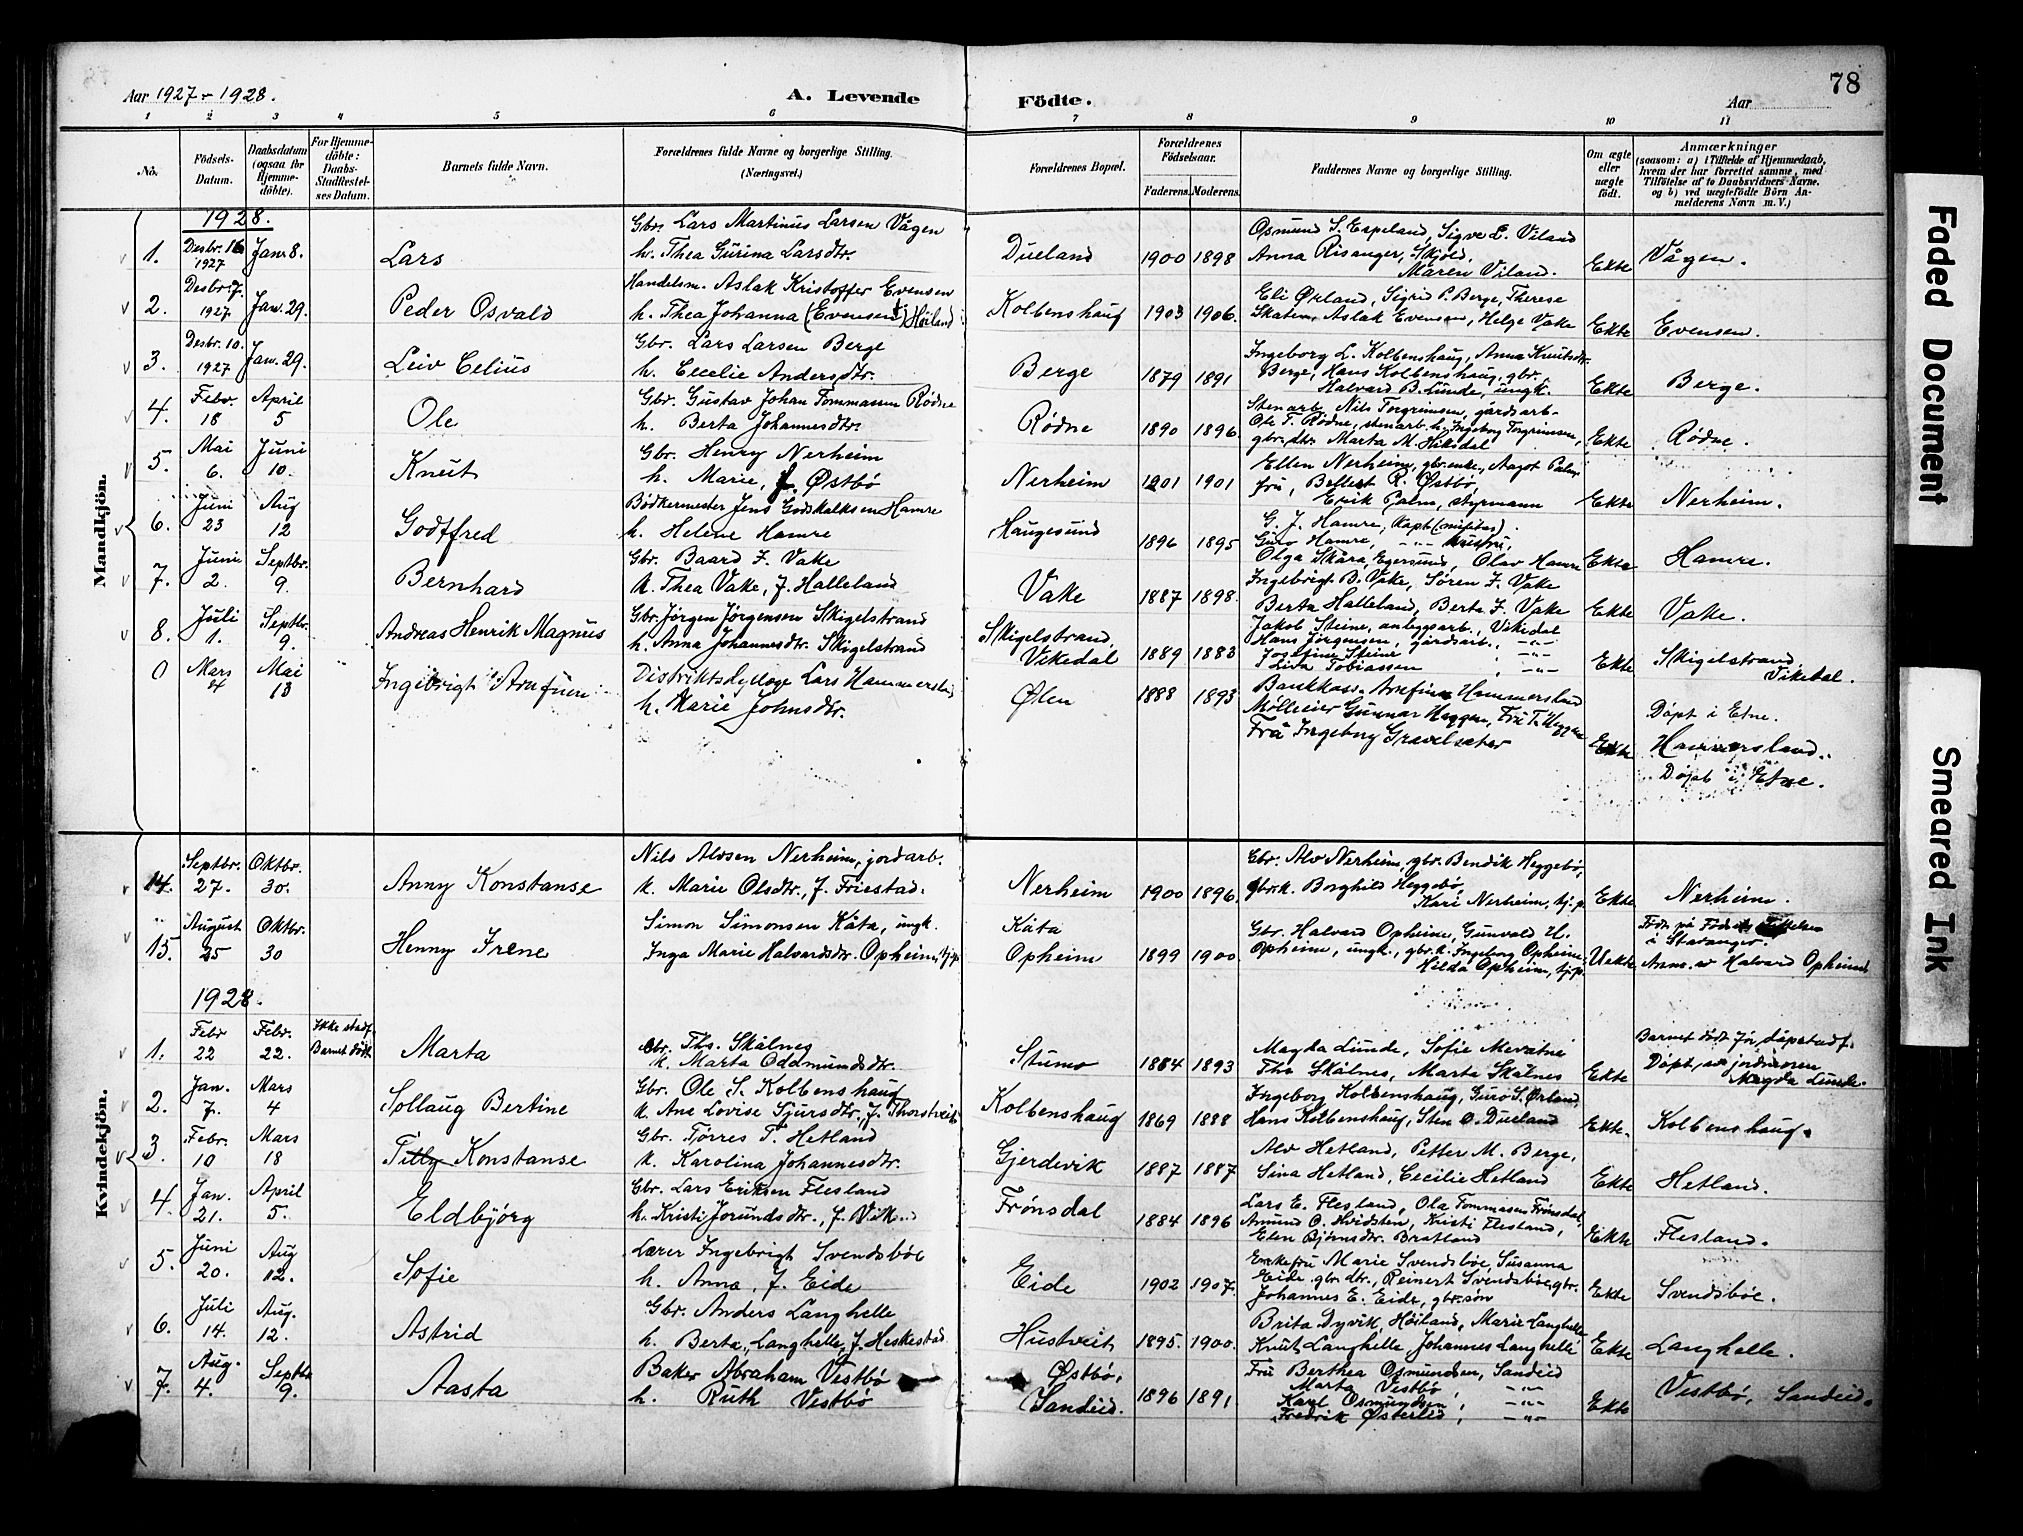 78
Aar 1927-1928.
A. Levende Födte.
Aar
1 2 3 4 5 6 7 8 9 10 11
No.
Födsels-Datum.
Daabsdatum (ogsaa for Hjemme-döbte).
For Hjemme-döbte: Daabs-Stadfæstel-ses Datum.
Barnets fulde Navn.
Forældrenes fulde Navne og borgerlige Stilling. (Næringsvei.)
Forældrenes Bopæl.
Forældrenes Födselsaar.
Faderens. Moderens.
Faddernes Navne og borgerlige Stilling.
Om ægte eller uægte födt.
Anmærkninger
(saasom: a) i Tilfælde af Hjemmedaab, hvem der har forrettet samme, med Tilföielse af to Daabsvidners Navne. og b) ved uægtefödte Börn An-melderens Navn m. V.)
Mandkjön.
1928.
1. Desbr. 16 1927 Jan. 8. Lars
Gbr. Lars Martinus Larsen Vågen
h. Thea Gurina Larsdtr.
Dueland 1900 1898
Osmund S. Espeland, Sigve L. Viland
Anna Risanger, Skjold,
Maren Viland.
Ekte Vågen.
2. Desbr. 7. 1927 Jan. 29. Peder Osvald
Handelsm. Aslak Kristoffer Evensen
h. Thea Johanna (Evensen f. Høiland)
Kolbenshaug 1903 1906.
Eli Ørland, Sigrid P. Berge, Therese
Skaten, Aslak Evensen, Helge Vake
Ekte Evensen.
3. Desbr. 10. 1927 Jan. 29. Leiv Celius
Gbr. Lars Larsen Berge
h. Cecelie Andersdtr.
Berge 1879 1891
Ingeborg L. Kolbenshaug, Anna Knutsdtr.
Berge, Hans Kolbenshaug, gbr.
Halvard B. Lunde, ungk.
Ekte Berge.
4. Febr. 18 April 5 Ole
Gbr. Gustav Johan Tommassen Rødne
h. Berta Johannesdtr.
Rødne 1890 1896.
Stenarb. Nils Torgrimsen, gårdsarb.
Ole T. Rødne, stenarb. h. Ingeborg Torgrimsen,
gbr. dtr. Marta M. Hiksdal
Ekte Rødne.
5. Mai 6. Juni 10. Knut
Gbr. Henry Nerheim
h. Marie, f. Østbø
Nerheim 1901 1901
Ellen Nerheim, gbr.enke, Aagot Palm
fru, Bellest R. Østbø,
Erik Palm, styrmann
Ekte Nerheim.
6. Juni 23 Aug 12 Godtfred
Bødkermester Jens Godskalksen Hamre
h. Helene Hamre
Haugesund 1896 1895
G. J. Hamre, Kapt.
Guro Hamre,
Olga Skåra, Egersund, Olav Hamre
Ekte Hamre.
7. Juni 2. Septbr. 9. Bernhard
Gbr. Baard F. Vake
k. Thea Vake, f. Halleland
Vake 1887 1898.
Ingebrigt B. Vake, Søren F. Vake
Berta Halleland, Berta F. Vake
Ekte Vake.
8. Juli 1. Septbr. 9. Andreas Henrik Magnus
Gbr. Jørgen Jørgensen Skigelstrand
h. Anna Johannesdtr. Skigelstrand
Skigelstrand, Vikedal 1889 1883
Jakob Steine, anleggsarb., Vikedal
Hans Jørgensen, gårdsarb., -"-
Josefine Steine, -"-
Liva Tobiassen, -"-
Ekte Skigelstrand, Vikedal.
0 Mars 4 Mai 13 Ingebrigt Arnfinn
Distriktsdyrlæge Lars Hammersland
h. Marie Johnsdtr.
Ølen 1888 1893
Bankkass. Arnfinn Hammersland
Møllerier Gunnar Heggen, Fru T. Heggen
Fru Ingeborg Gravelseter
Ekte
Døpt i Etne.
Hammersland.
Døpt i Etne.
Kvindekjön.
14. Septbr. 27. Oktbr. 30. Anny Konstanse
Nils Alvsen Nerheim, jordarb.
k. Marie Olsdtr., f. Friestad.
Nerheim 1900 1896.
Gbr. Alv Nerheim, gbr. Bendik Heggebø,
gbr.k. Borghild Heggebø,
Kari Nerheim, tj.p.
Ekte Nerheim.
15. August 25 Oktbr. 30 Henny Irene
Simon Simonsen Kåta, ungk.
Inga Marie Halvardsdtr. Opheim, tj.p.
Kåta
Opheim 1899 1900
Gbr. Halvard Opheim, Gunvald H.
Opheim, ungk., gbr.k. Ingeborg Opheim,
Hilda Opheim, tj.p.
Uekte
i Stavanger.
Anm. av Halvard Opheim
1928.
1. Febr 22 Febr. 22. Ikke stadf. Barnet dødt. Marta
Gbr. Ths. Skålnes
k. Marta Oddmundsdtr.
Stumo 1884 1893
Magda Lunde, Sofie Mevatne
Tho Skålnes, Marta Skålnes
Ekte
Barnet dødt før dåpstadf.
Døpt av jordmoren
Magda Lunde.
2. Jan. 7. Mars 4 Sollaug Bertine
Gbr. Ole S. Kolbenshaug
k. Ane Lovise Sjursdtr., f. Thorstveit
Kolbenshaug 1869 1888
Ingeborg Kolbenshaug, Guro S. Ørland,
Hans Kolbenshaug, Sten O. Dueland
Ekte. Kolbenshaug.
3. Febr. 10 Mars 18 Tilly Konstanse
Gbr. Tørres T. Hetland
k. Karolina Johannesdtr.
Gjerdevik 1887 1887
Alv Hetland, Petter M. Berge,
Sina Hetland, Cecilie Hetland
Ekte Hetland.
4. Jan. 21. April 5. Eldbjørg
Gbr. Lars Eriksen Flesland
h. Kristi Jorundsdtr., f. Vik
Frønsdal 1884 1896
Lars E. Flesland, Ola Tommasen Frønsdal,
Amund O. Hvidsten, Kristi Flesland,
Elen Bjørnsdtr. Bratland
Ekte Flesland.
5. Juni 20. Aug 12. Sofie
Lærer Ingebrigt Svendsbøe
h. Anna, f. Eide
Eide 1902 1907.
Enkefru Marie Svendsbøe, Susanna
Eide gbr. dtr., Reinert Svendsbøe, gbr.
Johannes E. Eide, gbr. søn
Ekte Svendsbøe.
6. Juli 14. Aug. 12. Astrid
Gbr. Anders Langhelle
h. Berta, Langhelle, f. Heskestad.
Hustveit 1895. 1900.
Brita Dyvik, Høiland, Marie Langhelle
Knut Langhelle, Johannes Langhelle
Ekte Langhelle.
7. Aug. 4. Septbr 9. Aasta
Baker Abraham Vestbø
h. Ruth Vestbø
Østbø, Sandeid. 1896 1891
Fru Berthea Osmundsen, Sandeid
Marta Vestbø, -"-
Karl Osmundsen, -"-
Fredrik Østerlid, -"-
Ekte Vestbø, Sandeid.
Faded Document
Smeared Ink